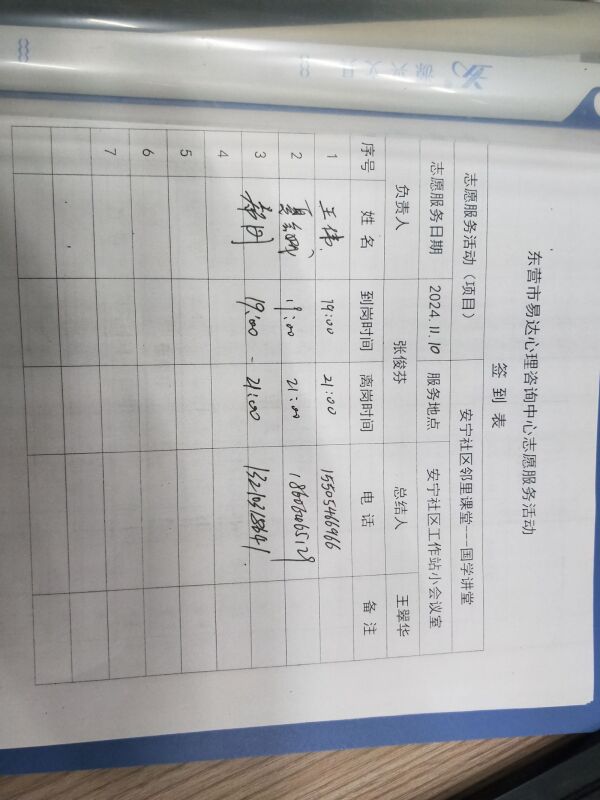 东营市易达心理咨询中心志愿服务活动
签到表
志愿服务活动（项目） 安宁社区邻里课堂---国学讲堂
志愿服务日期 2024.11.10 服务地点 安宁社区工作站小会议室
负责人 张俊芬 总结人 王翠华
序号 姓名 到岗时间 离岗时间 电话 备注
1 王伟 19:00 21:00 15505466966
2 19:00 21:00
3 19:00 - 21:00
4
5
6
7
源兴文具